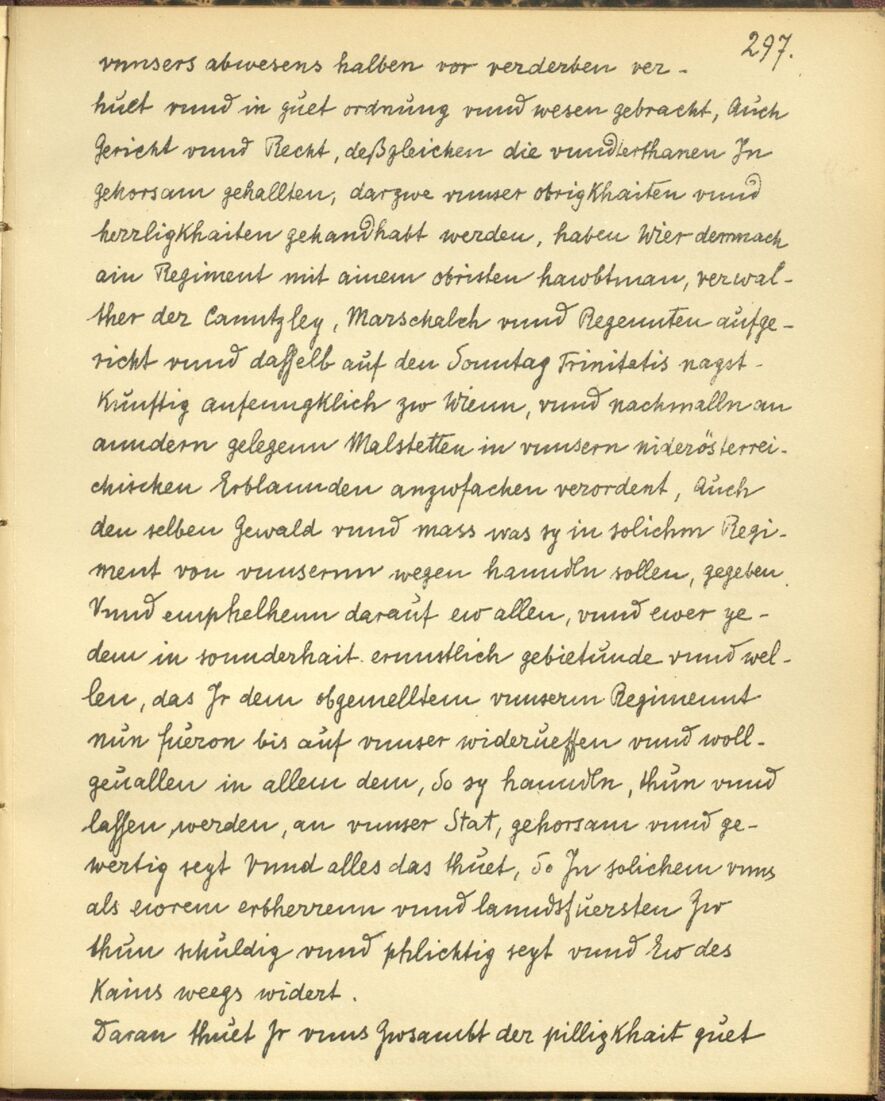 297.
vnnsers abwesens halben vor verderben ver-
huet vnnd in guet ordnung vnnd wesen gebracht, Auch
Gericht vnnd Recht, deßgleichen die vnndterthanen In
gehorsam gehallten, darzwe vnnser obrigkhaiten vnnd
herrligkhaiten gehandhabt werden, haben Wier demnach
ain Regiment mit ainem obristen hawbtman, verwal-
ther der Canntzley, Marschalch vnnd Regennten aufge-
richt vnnd dasselb auf den Sonntag Trinitatis nagst-
Kunftig anfenngklich zw Wienn, vnnd nachmalln an
anndern gelegenn Malstetten in vnnsern niderösterrei-
chischen Erblannden anzwfachen verordent, Auch
den selben Gewald vnnd mass was sy in solichm Regi-
ment von vnnsernn wegen hanndln sollen, gegeben
Vnnd emphelhenn darauf ew allen, vnnd ewer ye-
dem in sonnderhait ernnstlich gebietunde vnnd wel-
len, das Ir dem obgemelltem vnnserm Regimennt
nun fueron bis auf vnnser widerueffen vnnd woll-
geuallen in allem dem, So sy hanndln, thun vnnd
lassen werden, an vnnser Stat, gehorsam vnnd ge-
wertig seyt Vnnd alles das thuet, So In solichem vnns
als eworem erbherrenn vnnd lanndsfuersten Zw
thun schuldig vnnd phlichtig seyt vnnd Ew des
Kains weegs widert.
Daran thuet Ir vnns Zwsambt der pilligkhait guet